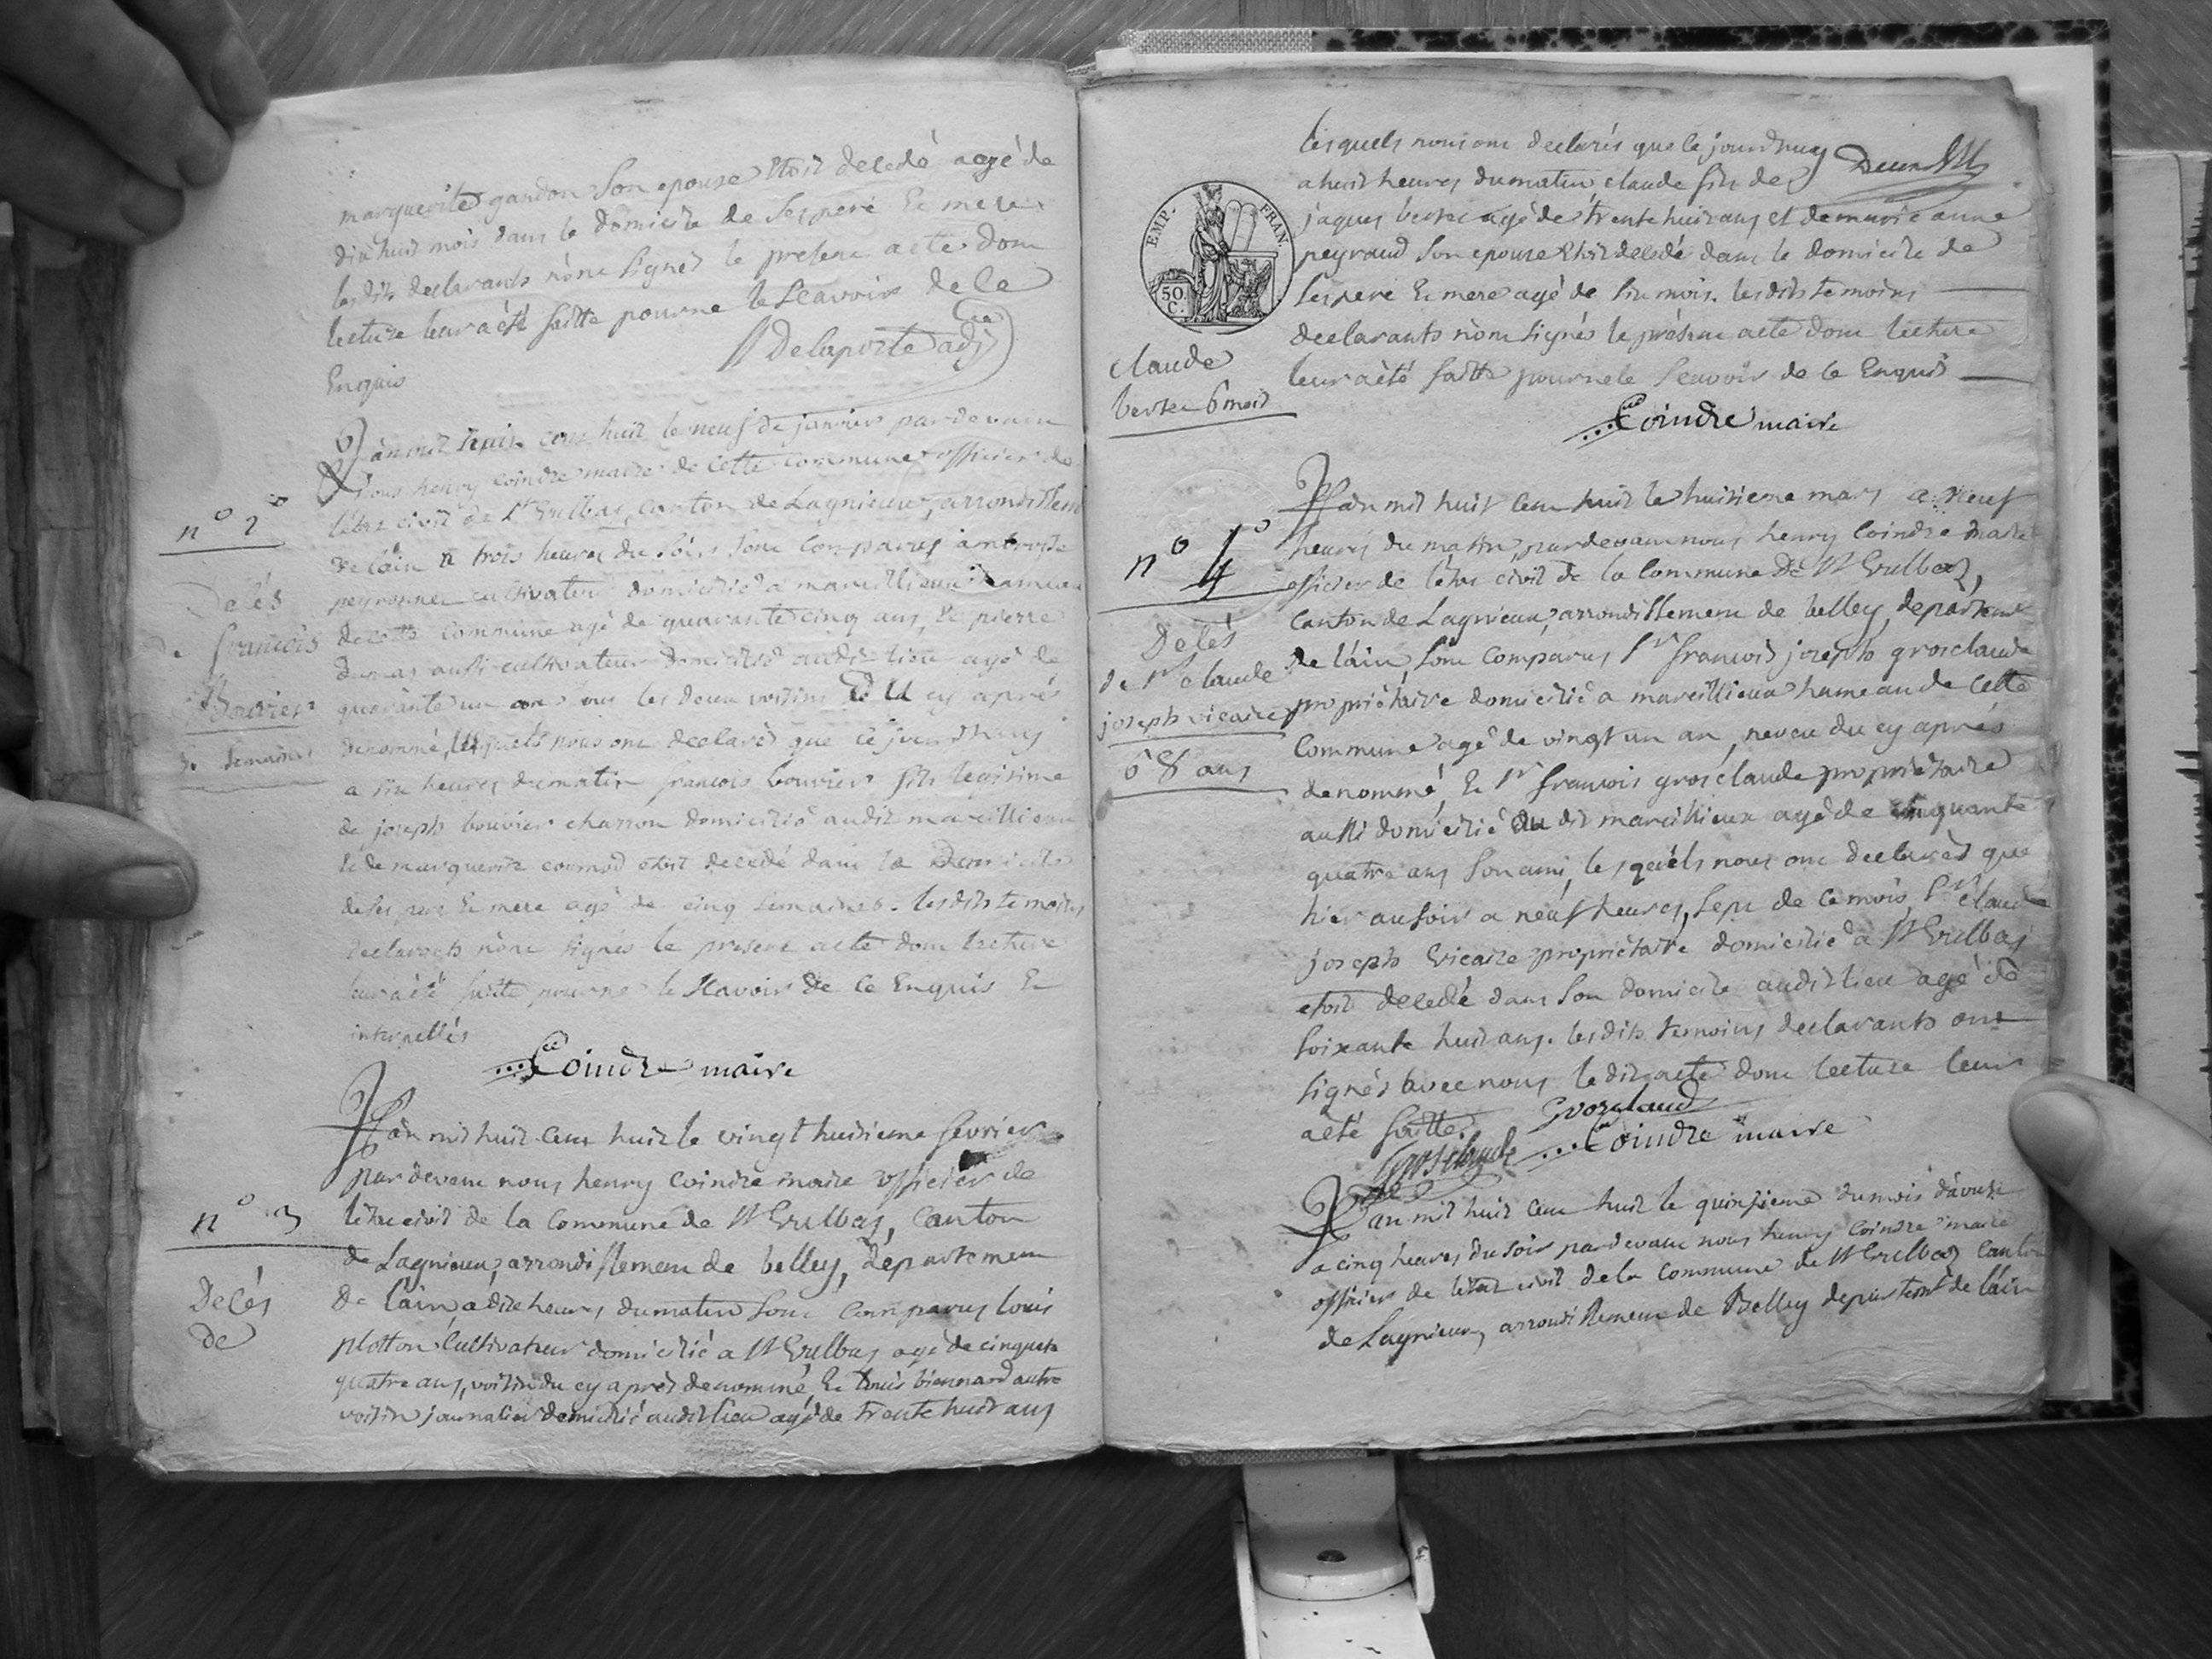 marguerite gandon son epouse etoit decedé agé de
dix huit mois dans le domicile de ses pere et mere
lesdits declarants n'ont signés le present acte dont
lecture leur a été faitte pour ne le scavoir de ce
Enquis
Delaporte adj
n° 2°
Decés
de françois
Bouvier
5. semaines
L'an mil huit cent huit le neuf de janvier pardevant
nous henry coindre maire de cette commune officier de
l'état civil de St Vulbas, canton de Lagnieux, arrondissem
de l'ain a trois heures du soir sont comparus ambroise
peyronnet cultivateur domicilié a marcillieux hameau
de cette commune agé de quarante cinq ans, et pierre
dumas aussi cultivateur domicilié audit lieu agé de
quarante un ans tous les deux voisins du cy aprés
denommé, lesquels nous ont declarés que ce jourdhuy
a six heures du matin francois bouvier fils legitime
de joseph bouvier charron domicilié audit marcillieux
et de marguerite etoit decedé dans le domicile
de ses pere et mere agé de cinq semaines. lesdits temoins
declarants n'ont signés le present acte dont lecture
leur a été faitte pour ne le scavoir de ce Enquis Et
interpellés
Coindre maire
n° 3
Decés
de
L'an mil huit cent huit le vingt huitieme fevrier
par devant nous henry coindre maire officier de
l'état civil de la commune de St Vulbas, canton
de Lagnieux, arrondissement de belley, departement
de l'ain a dix heures du matin sont comparus louis
plotton cultivateur domicilié a St Vulbas agé de cinquante
quatre ans, voisin du cy aprés denommé, Et louis bionnard autre
voisin journalier domicilié audit lieu agé de trente huit ans
lesquels nous ont declarés que le jourdhuy
a huit heures du matin claude fils de
jaques berthet agé de trente huit ans et de marie anne
peyraud son epouse etoit decedé dans le domicile de
ses pere Et mere agé de six mois. lesdits temoins
declarants n'ont signés le présent acte dont lecture
leur a été faitte pour ne le scavoir de ce Enquis
Coindre maire
EMP. FRAN.
50 C.
claude
6 mois
n° 4°
Decés
de Sr claude
joseph vicaire
68 ans
L'an mil huit cent huit le huitieme mars a neuf
heures du matin, pardevant nous henry coindre maire
officier de l'état civil de la commune de St Vulbas,
canton de Lagnieux, arrondissement de belley, departement
de l'ain, sont comparus Sr francois joseph grosclaude
propriétaire domicilié a marcillieux hameau de cette
commune agé de vingt un an, neveu du cy aprés
denommé, Et Sr francois grosclaude propriétaire
aussi domicilié du dit marcillieux agé de cinquante
quatre ans son ami, lesquels nous ont declarés que
hier au soir a neuf heures, sept de ce mois, Sr claude
joseph vicaire propriétaire domicilié a St Vulbas
etoit decedé dans son domicile audit lieu agé de
soixante huit ans. lesdits temoins declarants ont
signés avec nous le dit acte dont lecture leur
a été faitte.
Grosclaude
Grosclaude
Coindre maire
L'an mil huit cent huit le quinzieme du mois d'aoust
a cinq heures du soir pardevant nous henry coindre maire
officier de l'état civil de la commune de St Vulbas canton
de Lagnieux, arrondissement de Belley departemt de l'ain